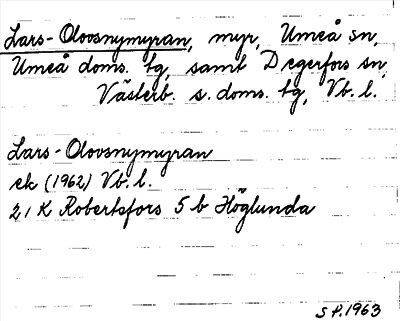 Lars-Olovsnymyran, myr, Umeå sn,
Umeå doms. tg, samt Degerfors sn,
Västerb. s. doms. tg, Vb. l.
Lars-Olovsnymyran
ek (1962) Vb. l.
21 K Robertsfors 5 b Höglunda
S P. 1963